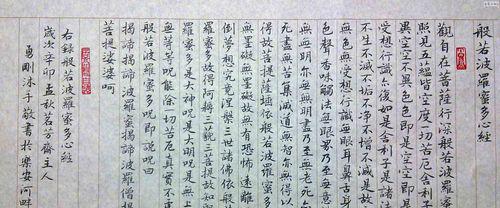 般若波羅蜜多心經
觀自在菩薩行深般若波羅蜜多
照見五蘊皆空度一切苦厄舍利子
異空空不異色色即是空空即是
受想行識亦復如是舍利子是諸法
不生不滅不垢不淨不增不減是故
無色無受想行識無眼耳鼻舌身
色聲香味觸法無眼界乃至無意
無無明亦無無明盡乃至無老死
盡無苦集滅道無智亦無得以
得故菩提薩埵依般若波羅蜜多
無罣礙無罣礙故無有恐怖遠離
倒夢想究竟涅槃三世諸佛依般
羅蜜多故得阿耨三藐三菩提故知
羅蜜多是大神呪是大明呪是無
無等等呪能除一切苦厄真實不
般若波羅蜜多呪即說呪曰
揭諦揭諦波羅蜜揭諦波羅僧揭
菩提娑婆呵
右錄般若波羅蜜多心經
歲次辛卯孟秋茗芳齋主人
勇剛沐手敬書於樂安河畔